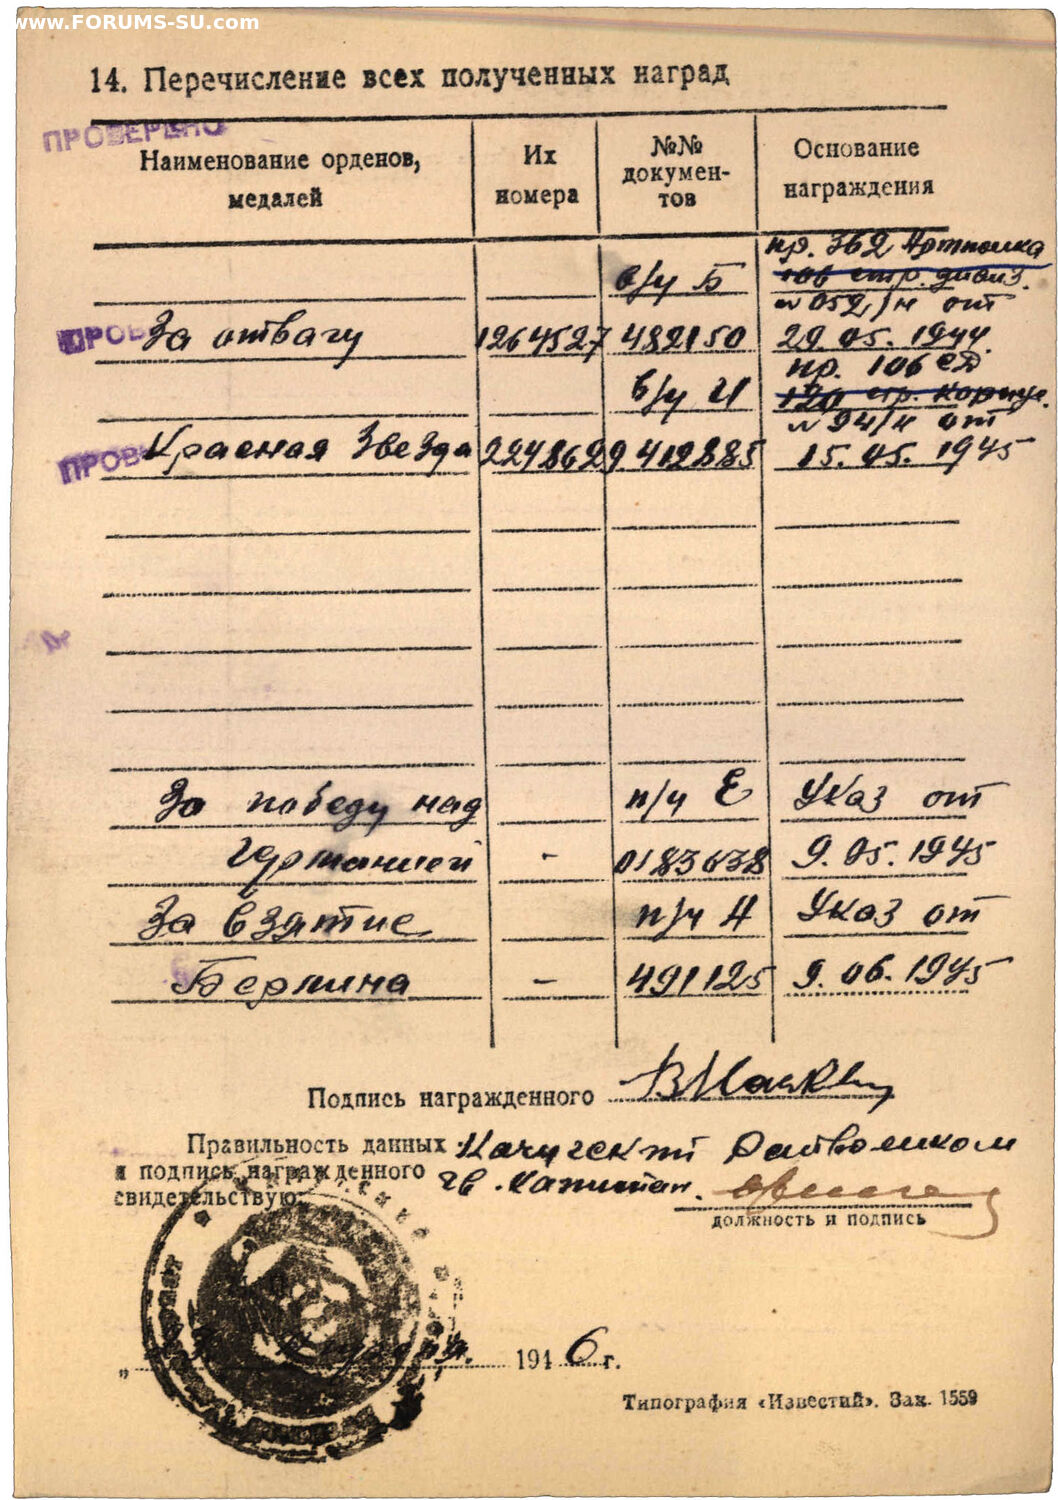 www.FORUMS-SU.com
14. Перечисление всех полученных наград
ПРОВЕРЕНО
Наименование орденов, медалей
Их номера
№№ докумен-тов
Основание награждения
в/у Б
пр. 362 Артполка
106 стр. дивиз.
№ 052/н от
ПРОВ
За отвагу 1264527 482150 29.05.1944.
в/у И
пр. 106 СД
120 стр. корпус.
№ 94/н от
ПРОВ
Красная Звезда 2248629 412885 15.05.1945
За победу над п/у Е Указ от
Германией - 0183638 9.05.1945
За взятие п/у А Указ от
Берлина - 491125 9.06.1945
Подпись награжденного
Правильность данных Качугский Райвоенком
и подпись награжденного гв. Капитан.
свидетельствую:
должность и подпись
„ 1946 г.
Типография «Известий». Зак. 1559